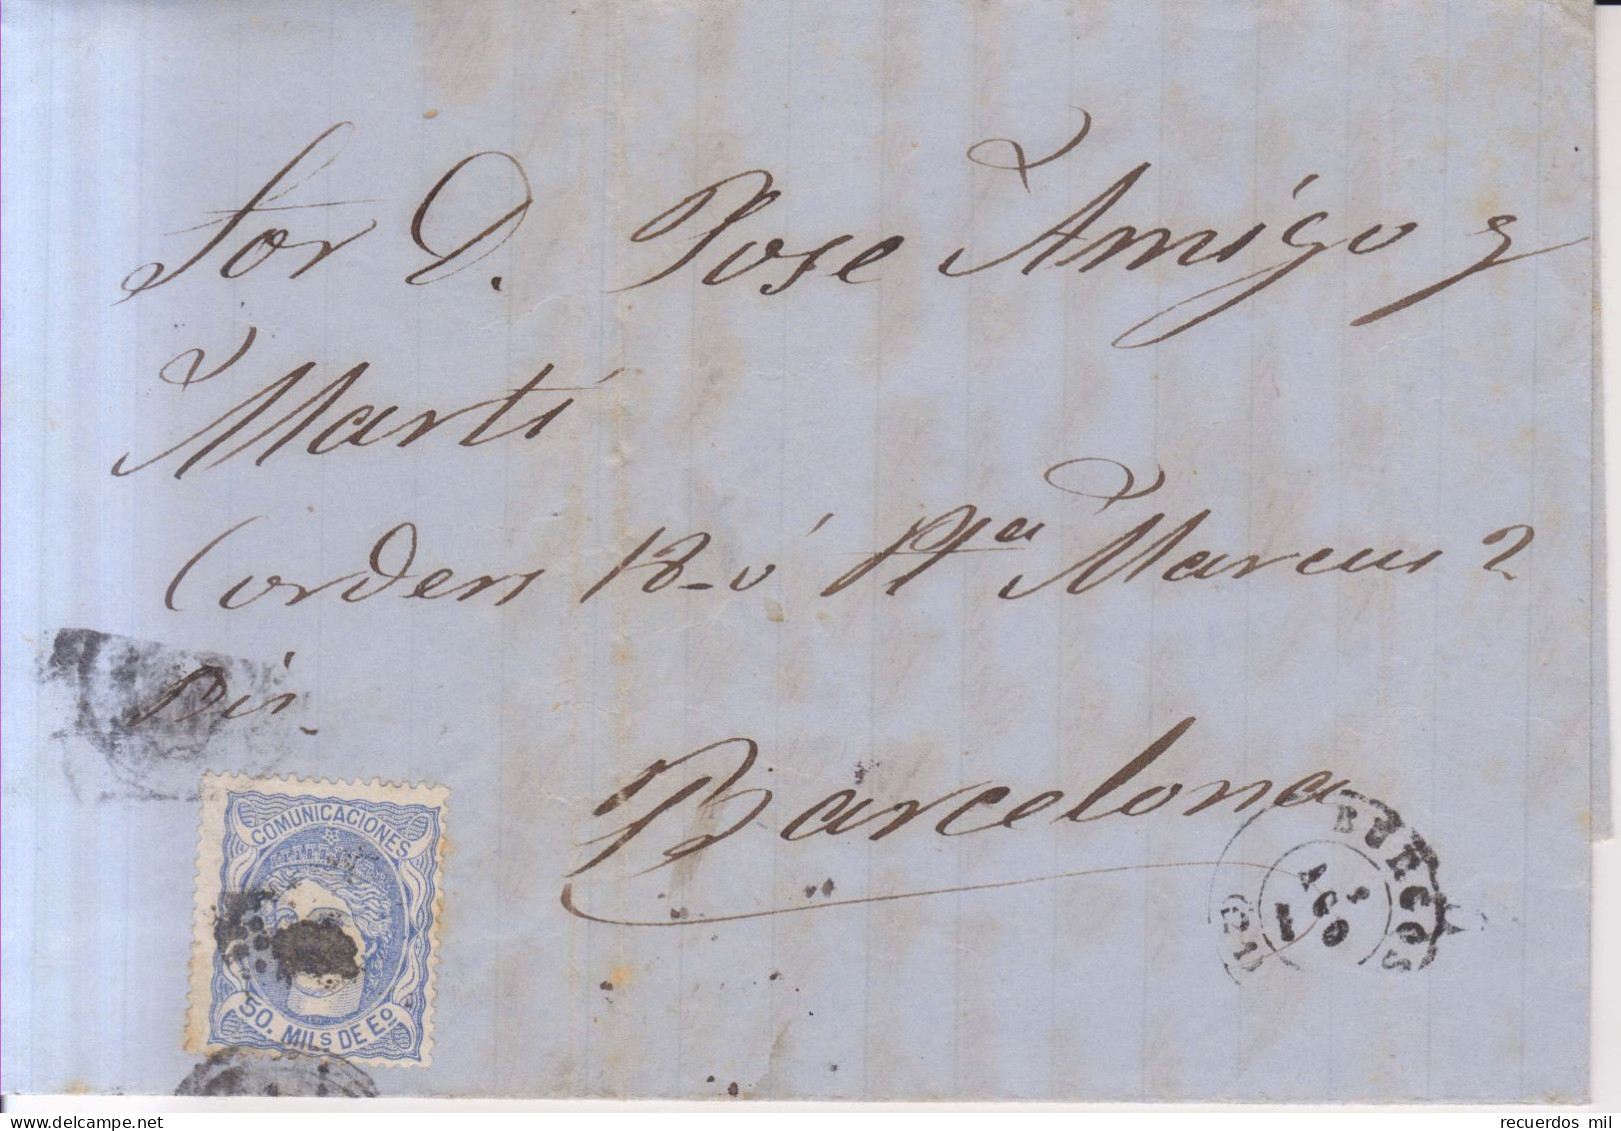 Sor D. Jose Amigo y
Martí
Corders 13-ó Pta Marcus 2
Barcelona
COMUNICACIONES
50. MILS DE Eo
BURGOS
AGO
recuerdos mil